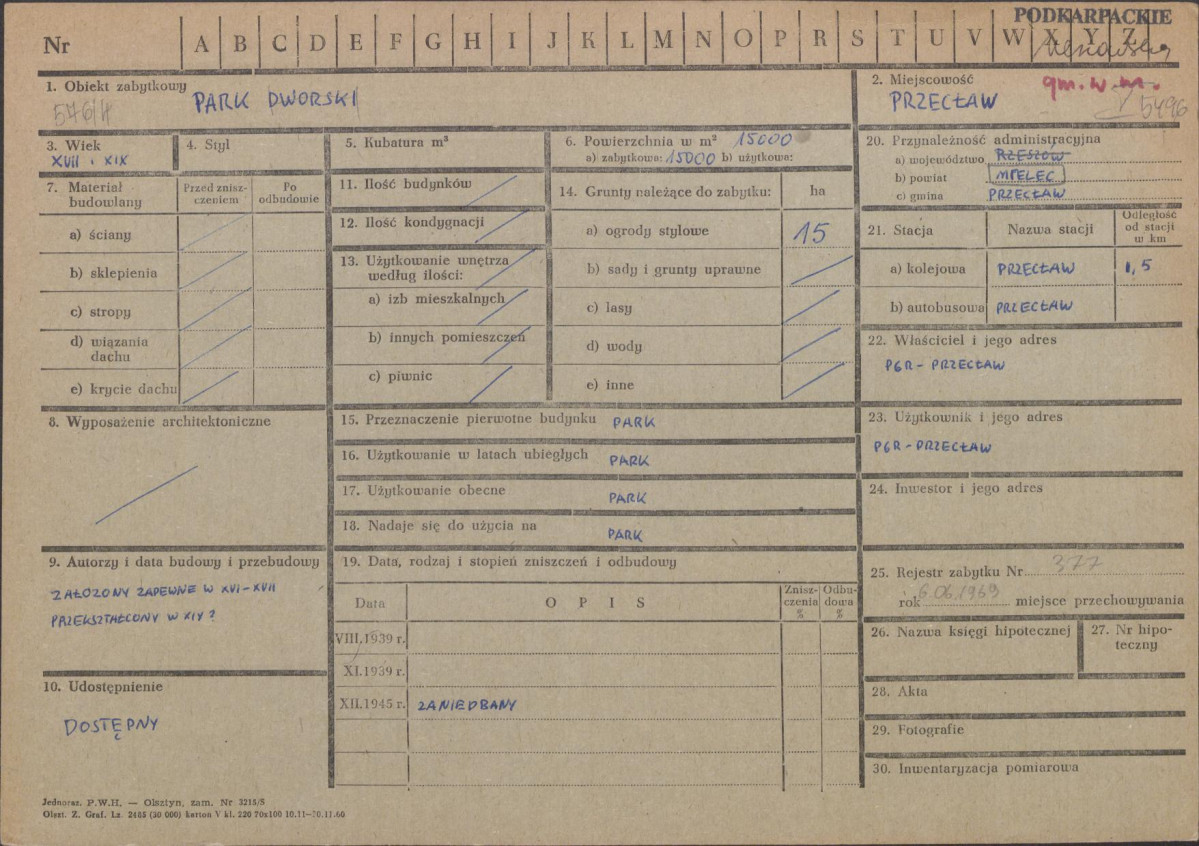 PODKARPACKIE
Nr A B C D E F G H I J K L M N O P R S T U V W X Y Z
1. Obiekt zabytkowy
576/4
PARK DWORSKI
2. Miejscowość
gm. w m.
PRZECŁAW
5496
3. Wiek
XVII i XIX
4. Styl
5. Kubatura m³
6. Powierzchnia w m² 15000
a) zabytkowa: 15000 b) użytkowa:
20. Przynależność administracyjna
a) województwo RZESZÓW
b) powiat MIELEC
c) gmina PRZECŁAW
7. Materiał budowlany
Przed zniszczeniem
Po odbudowie
a) ściany
b) sklepienia
c) stropy
d) wiązania dachu
e) krycie dachu
11. Ilość budynków
12. Ilość kondygnacji
13. Użytkowanie wnętrza według ilości:
a) izb mieszkalnych
b) innych pomieszczeń
c) piwnic
14. Grunty należące do zabytku: ha
a) ogrody stylowe 15
b) sady i grunty uprawne
c) lasy
d) wody
e) inne
21. Stacja
Nazwa stacji
Odległość od stacji w km
a) kolejowa PRZECŁAW 1,5
b) autobusowa PRZECŁAW
22. Właściciel i jego adres
PGR - PRZECŁAW
8. Wyposażenie architektoniczne
15. Przeznaczenie pierwotne budynku PARK
16. Użytkowanie w latach ubiegłych PARK
17. Użytkowanie obecne PARK
18. Nadaje się do użycia na PARK
23. Użytkownik i jego adres
PGR - PRZECŁAW
24. Inwestor i jego adres
9. Autorzy i data budowy i przebudowy
ZAŁOZONY ZAPEWNE W XVI-XVII
PRZEKSZTAŁCONY W XIX ?
19. Data, rodzaj i stopień zniszczeń i odbudowy
Data
O P I S
Zniszczenia %
Odbudowa %
VIII.1939 r.
XI.1939 r.
XII.1945 r. ZANIEDBANY
25. Rejestr zabytku Nr 377
rok 6.06.1969 miejsce przechowywania
26. Nazwa księgi hipotecznej
27. Nr hipoteczny
10. Udostępnienie
DOSTĘPNY
28. Akta
29. Fotografie
30. Inwentaryzacja pomiarowa
Jednoraz. P.W.H. — Olsztyn, zam. Nr 3215/S
Olszt. Z. Graf. Lz. 2485 (30 000) karton V kl. 220 70x100 10.11-20.11.60